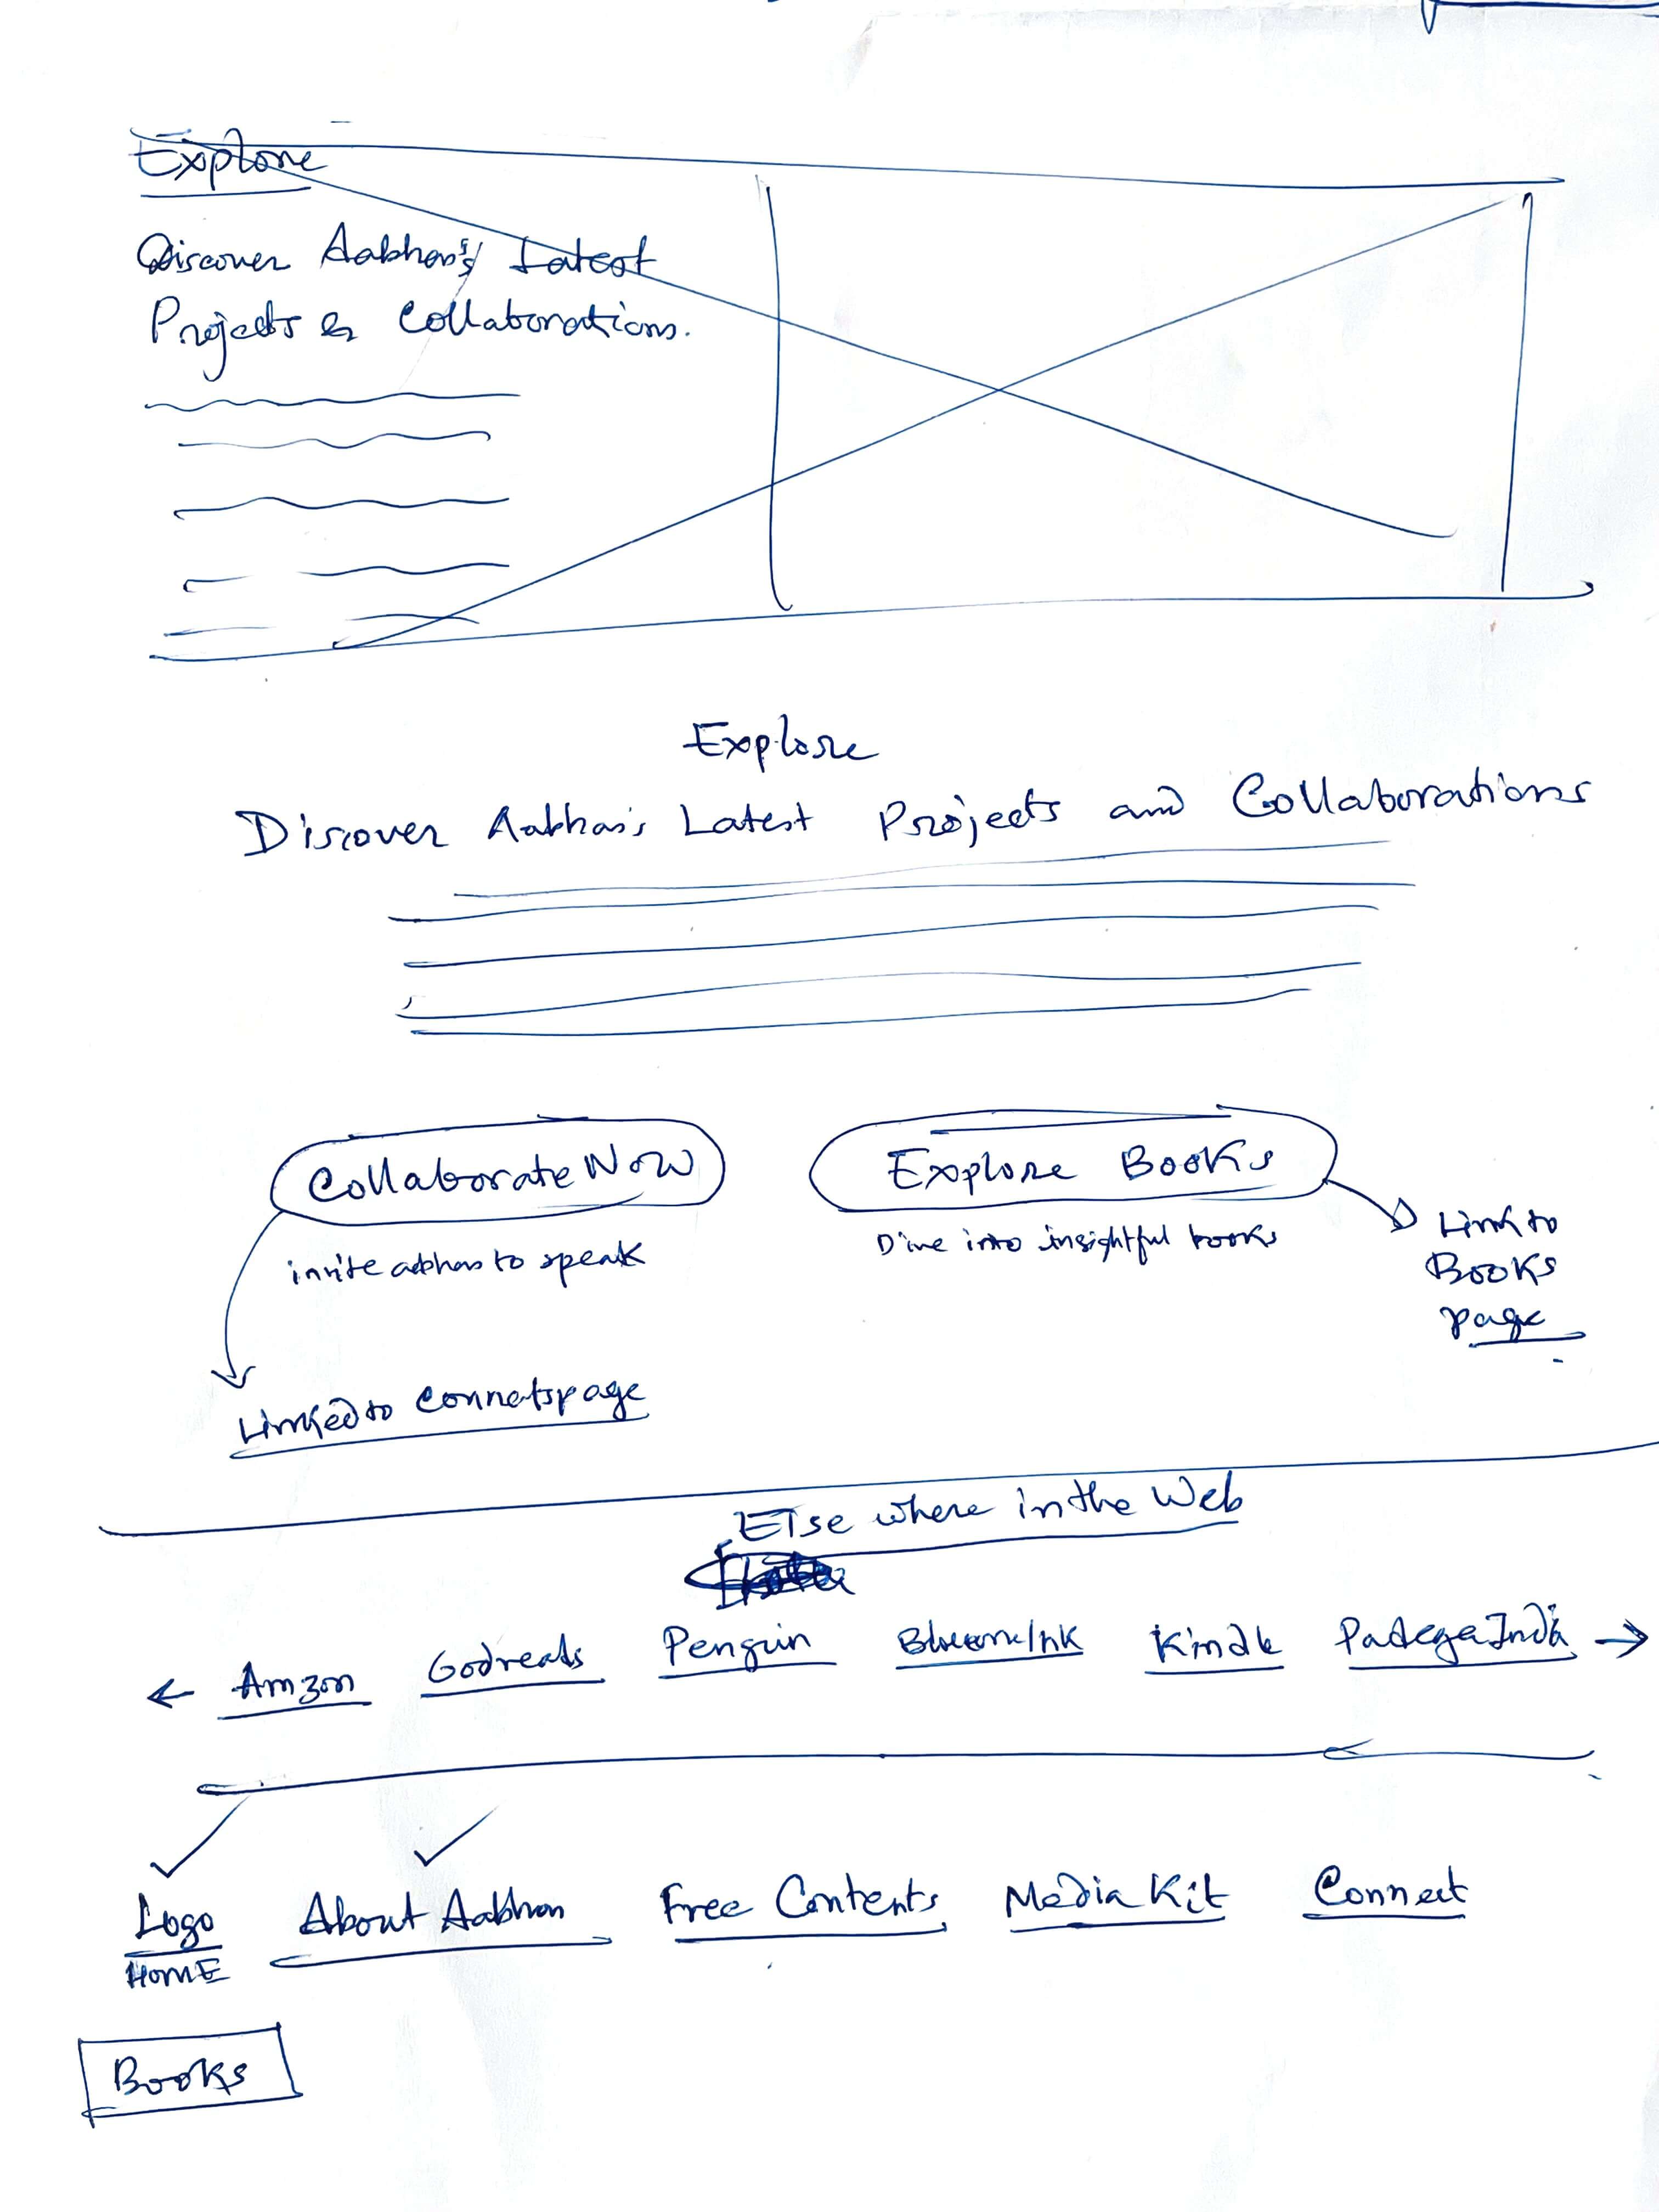 Explore
Discover Aabhas's Latest
Projects & Collaborations.
Explore
Discover Aabhas's Latest Projects and Collaborations
Collaborate Now
Explore Books
invite abhas to speak
Dive into insightful books
Link to
Books
page
Linked to connets page
Else where in the Web
Amzon Godreads Penguin Kindle
Logo About Aabhas Free Contents Media Kit Connect
HOME
Books